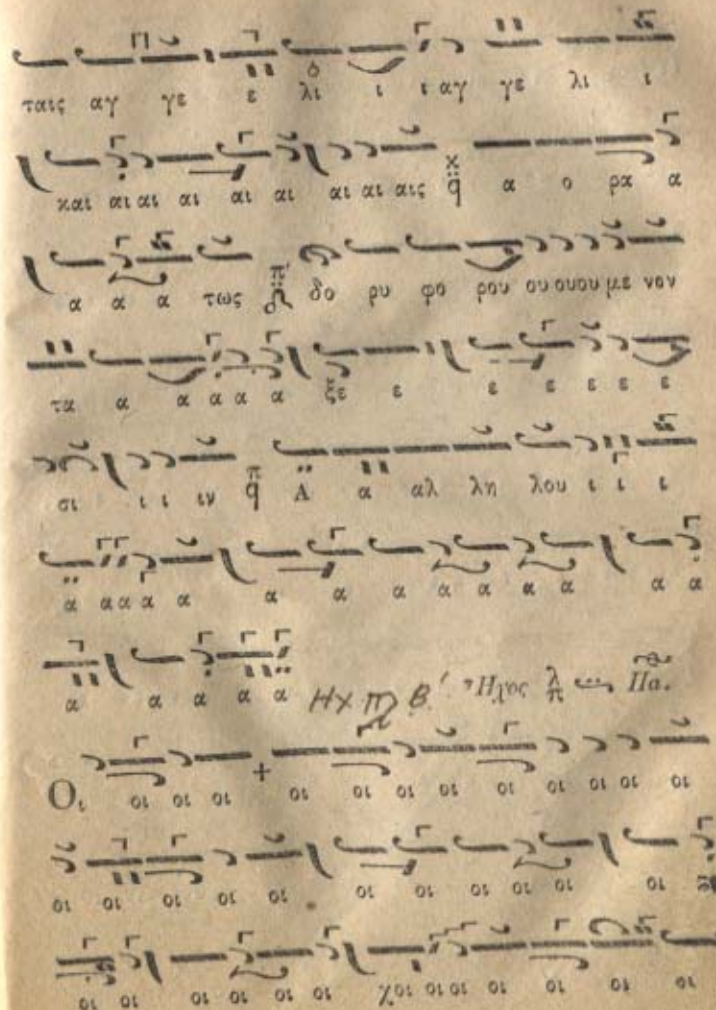 ταις αγ γε ε λι ι ι αγ γε λι ι
και αι αι αι αι αι αι αι αις α ο ρα α
α α α τως δο ρυ φο ρου ου ου ου με νον
τα α α α α α ξε ε ε ε ε ε ε
σι ι ι ιν Α α αλ λη λου ι ι ι
α α α α α α α α α α α α α α
α α α α α Ηχ π Β΄ Ἦχος λ π Πα.
Ο ι οι οι οι + οι οι οι οι οι οι οι οι οι
οι οι οι οι οι οι οι οι οι οι οι
οι οι οι οι οι οι χοι οι οι οι οι οι οι